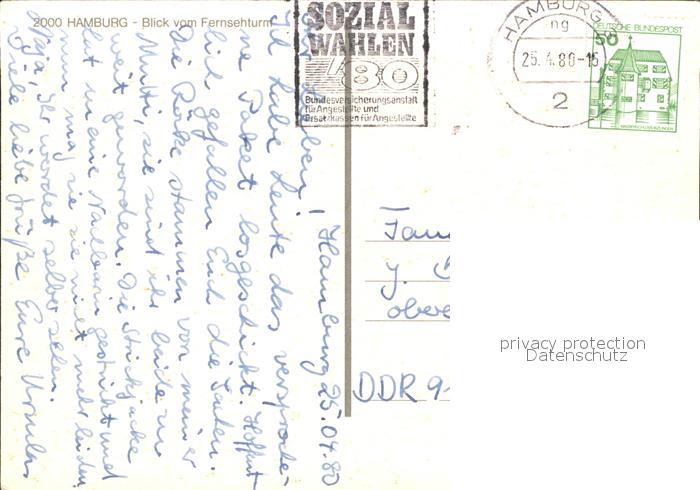 2000 HAMBURG - Blick vom Fernsehturm
SOZIAL
WAHLEN
'80
Bundesversicherungsanstalt
für Angestellte und
Ersatzkassen für Angestellte
HAMBURG
ng
25.4.80-15
2
DEUTSCHE BUNDESPOST
50
Hamburg 25.04.80
Ihr Lieben!
Ich habe heute das versproche-
ne Paket losgeschickt. Hoffent-
lich gefallen Euch die Sachen.
Die Röcke stammen von meiner
Mutti, sie sind ihr beide zu
weit geworden. Die Strickjacke
hat meine Nachbarin gestrickt und
nun mag sie sie nicht mehr leiden.
Naja, Ihr werdet selber sehen.
Viele liebe Grüße Eure Ursula
Fam
J.
obere
DDR 9
privacy protection
Datenschutz